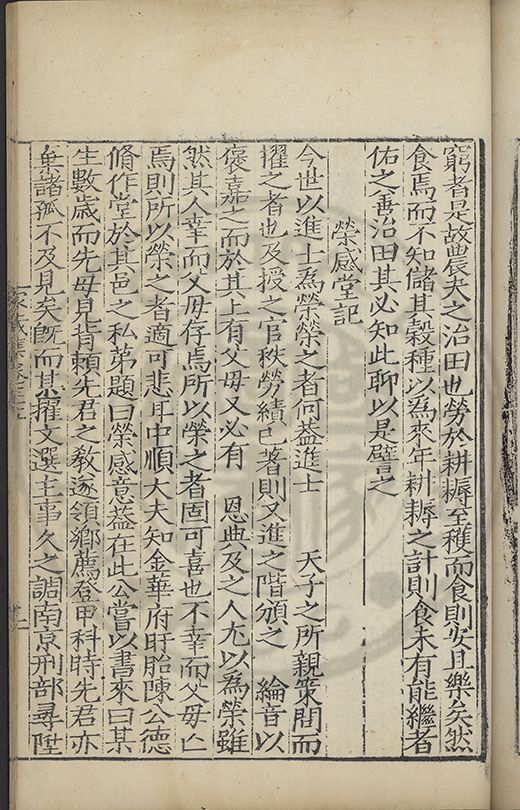 窮者是故農夫之治田也勞於耕耨至穫而食則安且樂矣然
食焉而不知儲其穀種以為來年耕耨之計則食未有能繼者
佑之善治田其必知此聊以是譬之
榮感堂記
今世以進士為榮榮之者何葢進士 天子之所親策問而
擢之者也及授之官秩勞績已著則又進之階頒之 綸音以
褒嘉之而於其上有父母又必有 恩典及之人尤以為榮雖
然其人幸而父母存焉所以榮之者固可喜也不幸而父母亡
焉則所以榮之者適可悲耳中順大夫知金華府盱眙陳公德
脩作堂於其邑之私第題曰榮感意葢在此公嘗以書來曰某
生數歲而先母見背賴先君之教遂領鄉薦登甲科時先君亦
棄諸孤不及見矣旣而某擢文選主事久之調南京刑部尋陞
家藏集卷三十